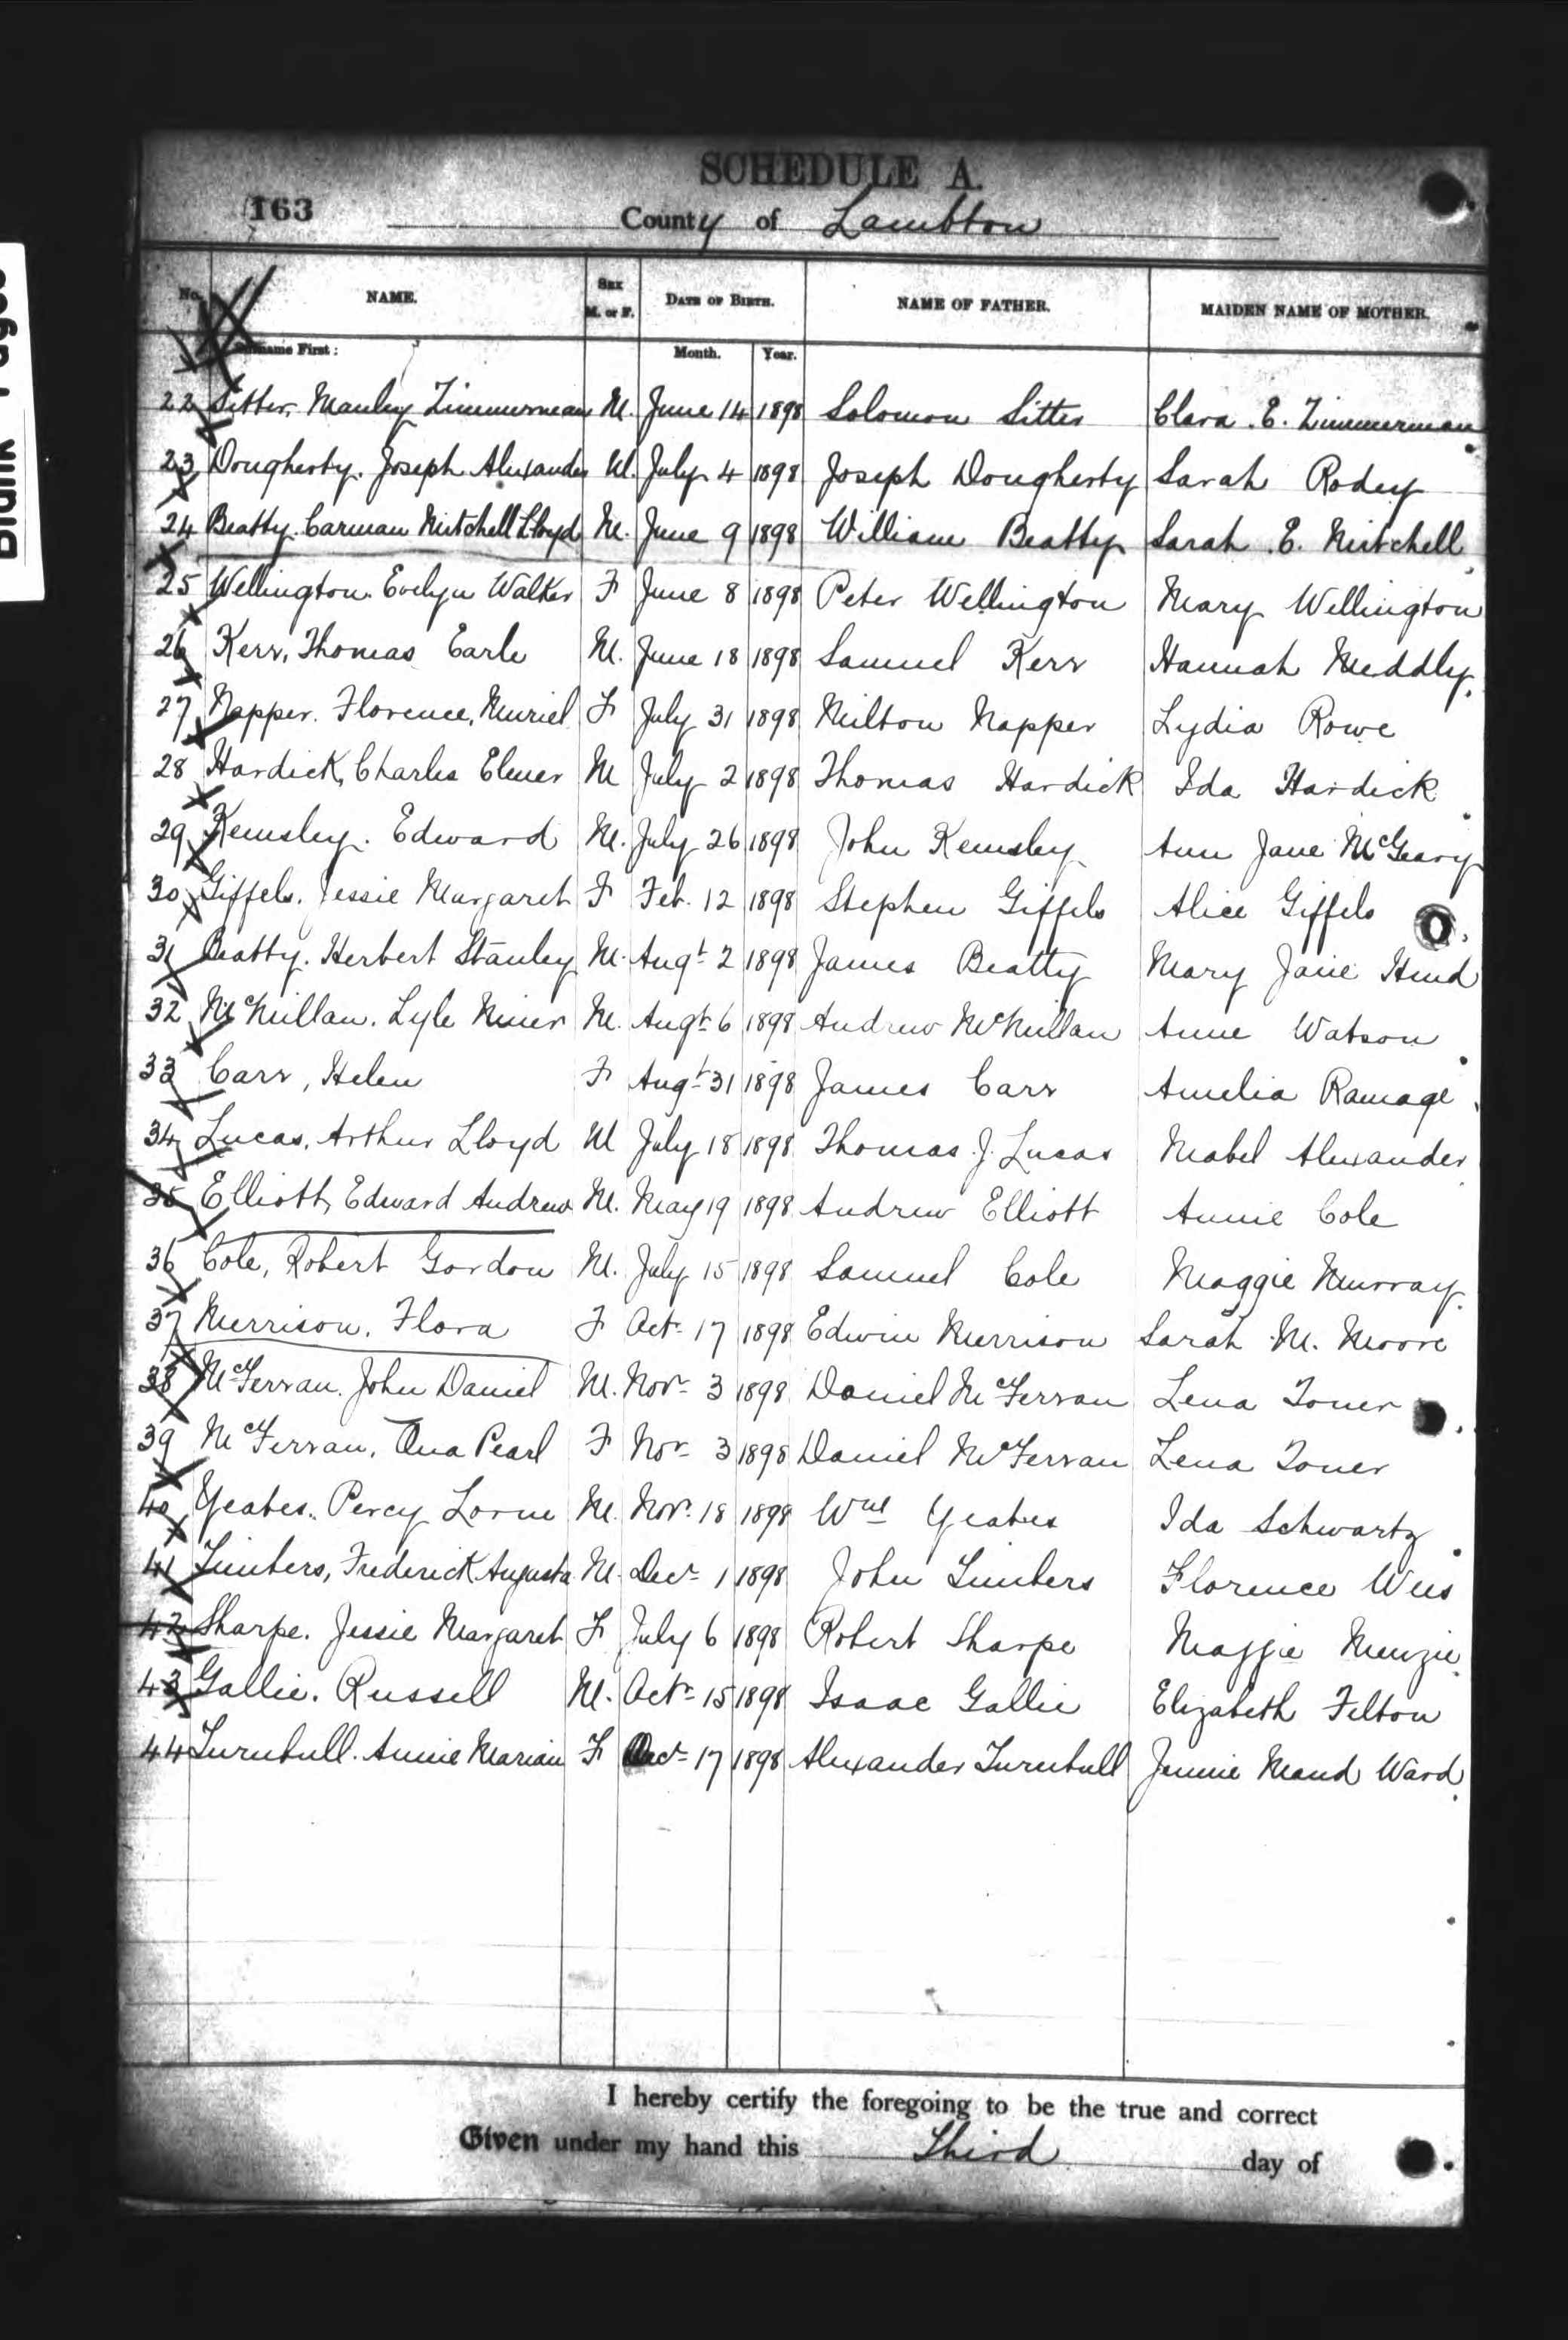 Blank Pages
SCHEDULE A.
163
County of Lambton
No. NAME. Sex M. or F. DATE OF BIRTH. NAME OF FATHER. MAIDEN NAME OF MOTHER.
Surname First: Month. Year.
22 Sitter, Manley Zimmerman M. June 14 1898 Solomon Sitter Clara. E. Zimmerman
23 Dougherty. Joseph Alexander M. July 4 1898 Joseph Dougherty Sarah Rodey
24 Beatty. Carman Mitchell Lloyd M. June 9 1898 William Beatty Sarah. E. Mitchell
25 Wellington. Evelyn Walker F June 8 1898 Peter Wellington Mary Wellington
26 Kerr, Thomas Earle M. June 18 1898 Samuel Kerr Hannah Meddly
27 Napper. Florence, Muriel F July 31 1898 Milton Napper Lydia Rowe
28 Hardick, Charles Elmer M July 2 1898 Thomas Hardick Ida Hardick
29 Kemsley. Edward M. July 26 1898 John Kemsley Ann Jane McGeary
30 Giffels. Jessie Margaret F Feb. 12 1898 Stephen Giffels Alice Giffels
31 Beatty. Herbert Stanley M. Augt 2 1898 James Beatty Mary Jane Hind
32 McMillan. Lyle Miner M. Augt 6 1898 Andrew McMillan Anne Watson
33 Carr, Helen F Augt 31 1898 James Carr Amelia Ramage
34 Lucas, Arthur Lloyd M July 18 1898 Thomas. J. Lucas Mabel Alexander
35 Elliott, Edward Andrew M. May 19 1898 Andrew Elliott Annie Cole
36 Cole, Robert Gordon M. July 15 1898 Samuel Cole Maggie Murray
37 Merrison. Flora F Oct. 17 1898 Edwin Merrison Sarah M. Moore
38 McFerran. John Daniel M. Nov. 3 1898 Daniel McFerran Lena Toner
39 McFerran, Ona Pearl F Nov 3 1898 Daniel McFerran Lena Toner
40 Yeates. Percy Lorne M. Nov. 18 1898 Wm Yeates Ida Schwartz
41 Timbers, Frederick Augusta M. Dec. 1 1898 John Timbers Florence Weis
42 Sharpe. Jessie Margaret F July 6 1898 Robert Sharpe Maggie Menzie
43 Gallie. Russell M. Oct. 15 1898 Isaac Gallie Elizabeth Felton
44 Turnbull. Annie Marian F Dec. 17 1898 Alexander Turnbull Jennie Maud Ward
I hereby certify the foregoing to be the true and correct
Given under my hand this Third day of